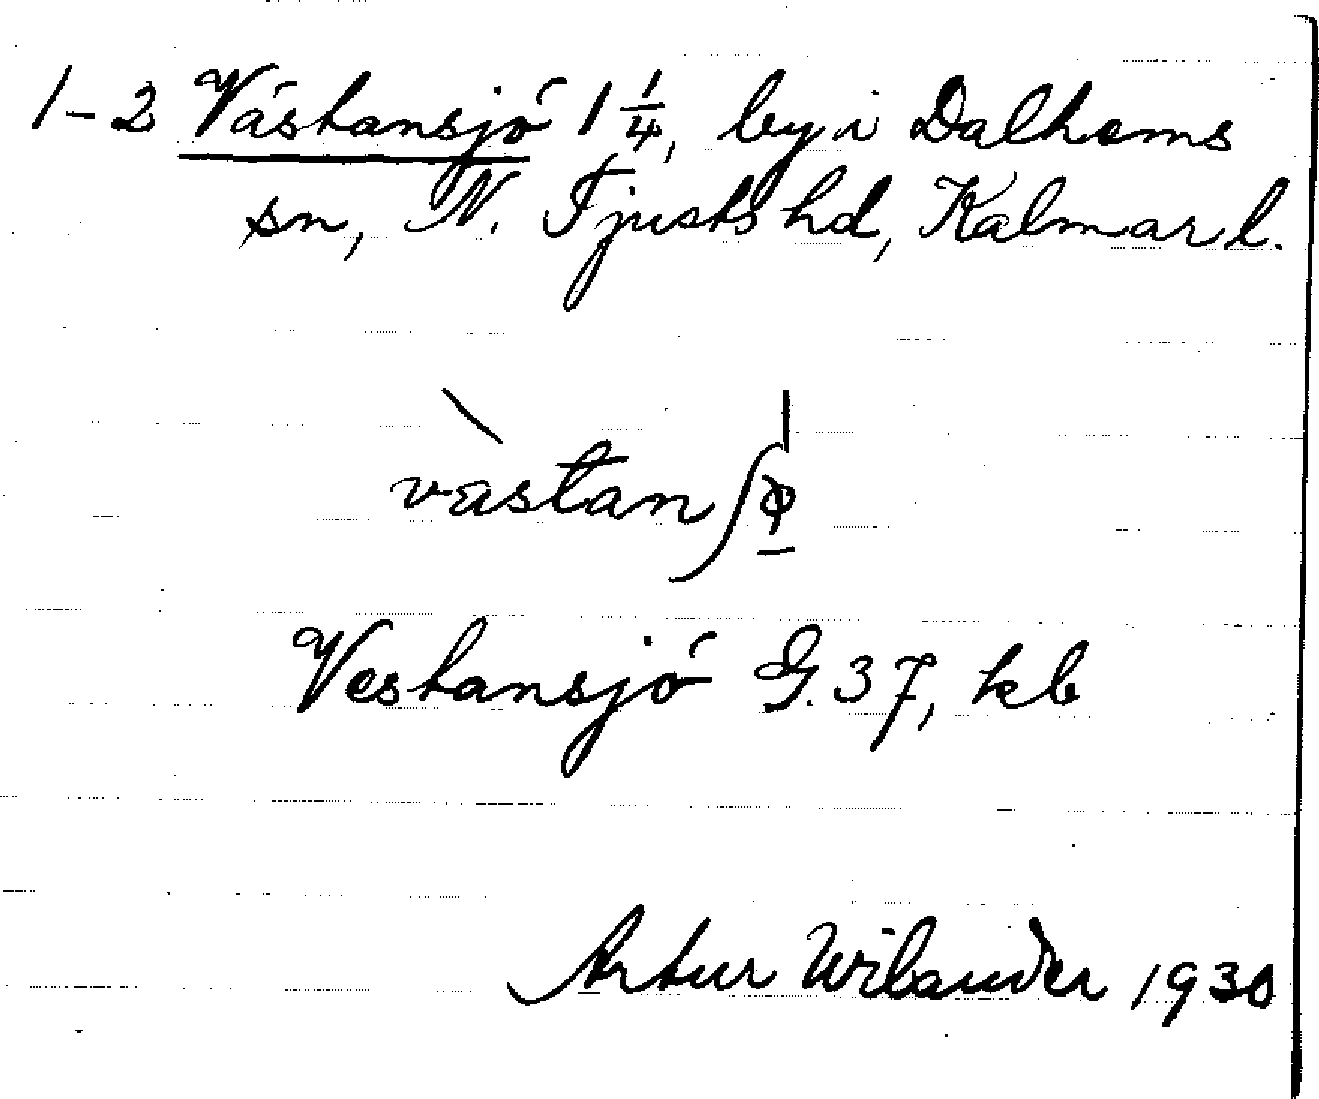 1-2 Västansjö 1 1/4, by i Dalhems
sn, N. Tjusts hd, Kalmar l.
västan
Vestansjö G. 37, kb
Artur Wilander 1930